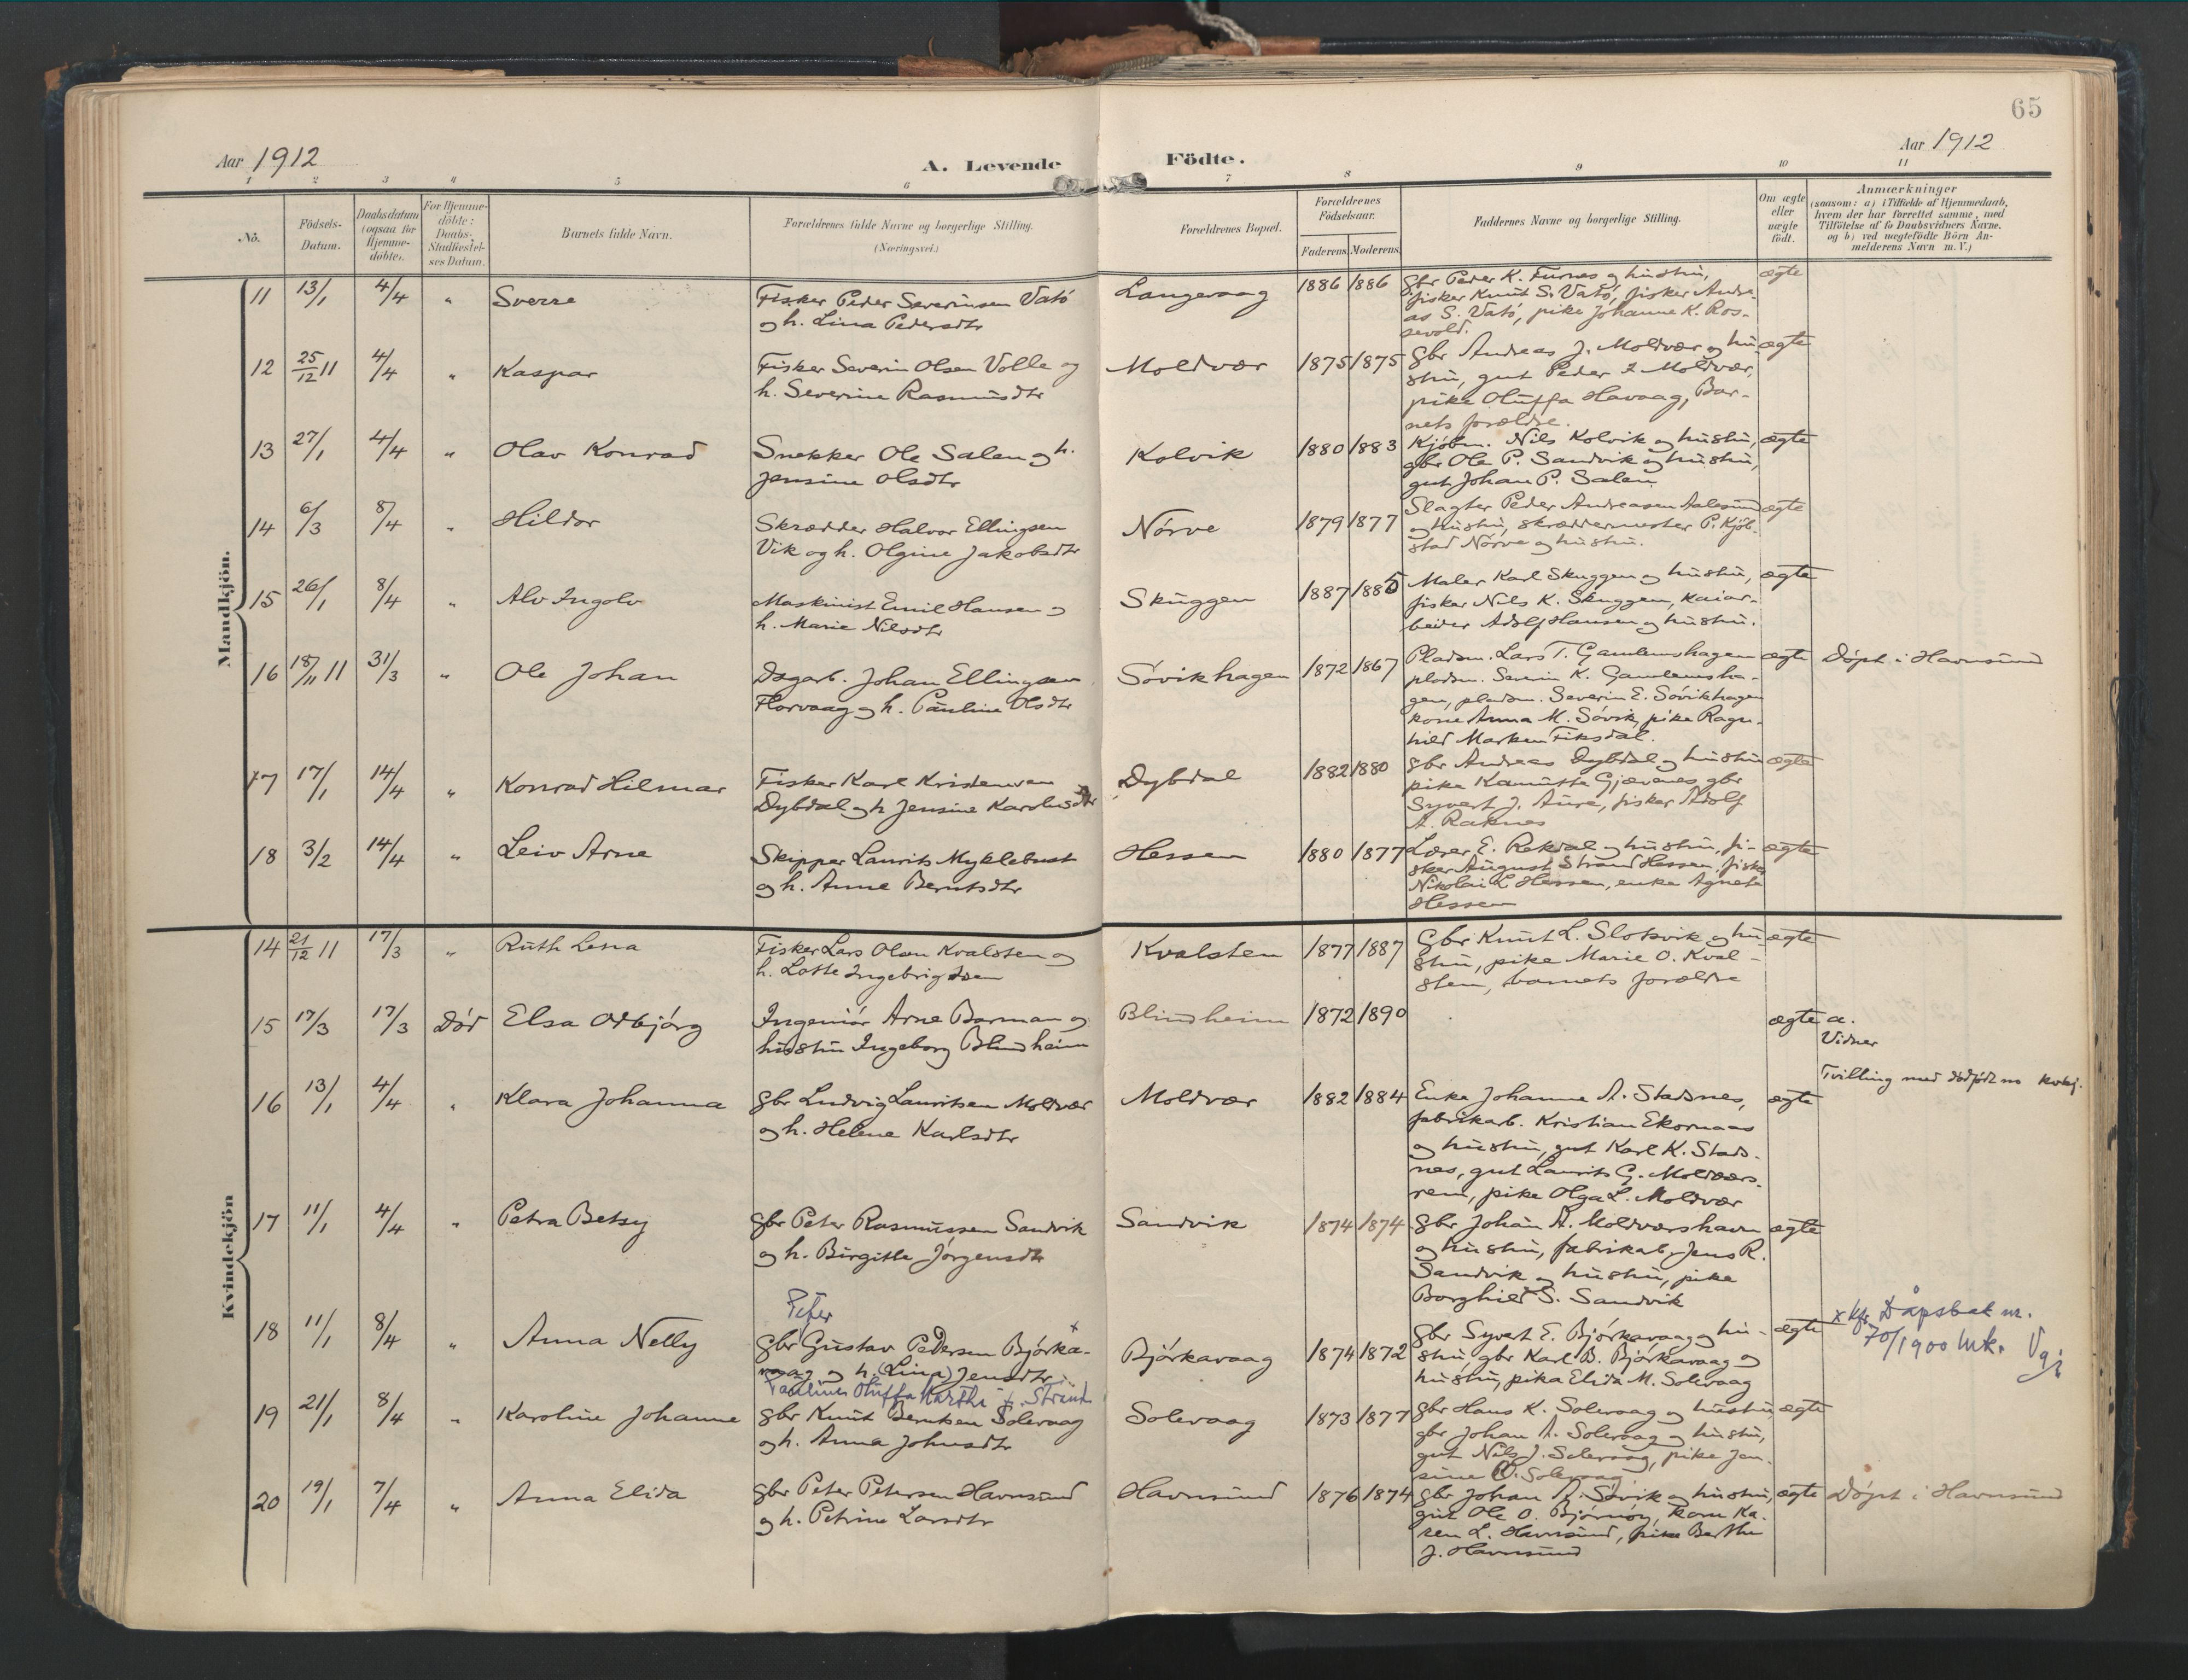 65
Aar 1912
A. Levende Födte.
Aar 1912
1 2 3 4 5 6 7 8 9 10 11
No.
Födsels-
Datum.
Daabsdatum
(ogsaa for
Hjemme-
döbte).
For Hjemme-
döbte:
Daabs-
Stadfæstel-
ses Datum.
Barnets fulde Navn.
Forældrenes fulde Navne og borgerlige Stilling.
(Næringsvei.)
Forældrenes Bopæl.
Forældrenes
Födselsaar.
Faderens. Moderens.
Faddernes Navne og borgerlige Stilling.
Om ægte
eller
uægte
födt.
Anmærkninger
(saasom: a) i Tilfælde af Hjemmedaab,
hvem der har forrettet samme, med
Tilföielse af to Daabsvidners Navne,
og b) ved uægtefödte Börn An-
melderens Navn m. V.)
Mandkjön.
11 13/1 4/4 " Sverre
Fisker Peder Severinsen Vató
og h. Lina Pedersdtr
Langevaag 1886 1886
gbr Peder K. Furnes og hustru,
fisker Knut S. Vató, fisker Andre-
as S. Vató, pike Johanne K. Ros-
sevold.
ægte
12 25/12 11 4/4 " Kaspar
Fisker Severin Olsen Volle og
h. Severine Rasmusdtr
Moldvær 1875 1875
gbr Andreas J. Moldvær og hu-
stru, gut Peder I Moldvær,
pike Oluffa Havaag, Bar-
nets forældre.
ægte
13 27/1 4/4 " Olav Konrad
Snekker Ole Salen og h.
Jensine Olsdtr
Kolvik 1880 1883
Kjöbm. Nils Kolvik og hustru,
gbr Ole P. Sandvik og hustru,
gut Johan P. Salen
ægte
14 6/3 8/4 " Hildor
Skrædder Halvor Ellingsen
Vik og h. Olgine Jakobsdtr
Nórve 1879 1877
Slagter Peder Andreasen Aalesund
og hustru, skræddermester P. Kjöb-
stad Nórve og hustru.
ægte
15 26/1 8/4 " Alv Ingolv
Maskinist Emil Hansen og
h. Marie Nilsdtr
Skuggen 1887 1885
Maler Karl Skuggen og hustru,
fisker Nils K. Skuggen, kaiar-
beider Adolf Hansen og hustru.
ægte
16 18/11 11 31/3 " Ole Johan
Dagarb. Johan Ellingsen
Florvaag og h. Pauline Olsdtr
Sóvikhagen 1872 1867
Pladsm. Lars T. Gamlemshagen
pladsm. Severin K. Gamlemsha-
gen, pladsm. Severin E. Sóvikhagen
kone Anna M. Sóvik, pike Ragn-
hild Marken Fiksdal.
ægte
Dópt i Havnsund
17 17/1 14/4 " Konrad Hilmar
Fisker Karl Kristensen
Dybdal og h Jensine Karolusdtr
Dybdal 1882 1880
gbr Andreas Dybdal og hustru
pike Kanutte Gjævenes gbr
Syvert J. Aure, fisker Adolf
A. Raknes
ægte
18 3/2 14/4 " Leiv Arne
Skipper Laurits Myklebust
og h. Anne Berntsdtr
Hessen 1880 1877
Lærer E. Rekdal og hustru, fi-
sker August Strand Hessen, fisker
Nikolai L Hessen, enke Agnete
Hessen
ægte
Kvindekjön
14 21/12 11 17/3 " Ruth Lena
Fisker Lars Olsen Kvalsten og
h. Lotte Ingebrigtsen
Kvalsten 1877 1887
Gbr Knut L. Slotsvik og hu-
stru, pike Marie O. Kval-
sten, barnets forældre
ægte
15 17/3 17/3 Dód Elsa Odbjórg
Ingeniór Arne Barman og
hustru Ingeborg Blindheim
Blindheim 1872 1890
ægte
a.
Vidner
16 13/1 4/4 " Klara Johanna
gbr Ludvig Lauritsen Moldvær
og h. Helene Karlsdtr
Moldvær 1882 1884
Enke Johanne A. Stadsnes,
fabrikarb. Kristian Ekornaas
og hustru, gut Karl K. Stads-
nes, gut Laurits G. Moldværs-
rem, pike Olga L. Moldvær
ægte
Tvilling med dódfódt no kvkj.
17 11/1 4/4 " Petra Betsy
gbr Peter Rasmussen Sandvik
og h. Birgitte Jórgensdtr
Sandvik 1874 1874
gbr Johan A. Moldværshavn
og hustru, fabrikarb. Jens R.
Sandvik og hustru, pike
Borghild S. Sandvik
ægte
18 11/1 8/4 " Anna Nelly
Peter
gbr Gustav Pedersen Bjórka- x
vaag og h. (Lina) Jensdtr.
Pauline Oluffa Martha f. Strand
Bjórkavaag 1874 1872
gbr Syvert E. Bjórkavaag og hu-
stru, gbr Karl B. Bjórkavaag og
hustru, pika Elida M. Solevaag
ægte
x kfr. Dåpsbok nr.
70/1900 mk.
19 21/1 8/4 " Karoline Johanne
gbr Knut Berntsen Solevaag
og h. Anna Johnsdtr
Solevaag 1873 1877
gbr Hans K. Solevaag og hustru,
gbr Johan A. Solevaag og hustru,
gut Nils J. Solevaag, pike Jen-
sine O. Solevaag
ægte
20 19/1 7/4 " Anna Elida
gbr Peter Petersen Havnsund
og h. Petrine Larsdtr
Havnsund 1876 1874
gbr Johan A. Sóvik og hustru,
gut Ole O. Bjórnóy, kone Ka-
ren L. Havnsund, pike Berthe
J. Havnsund
ægte
Dópt i Havnsund